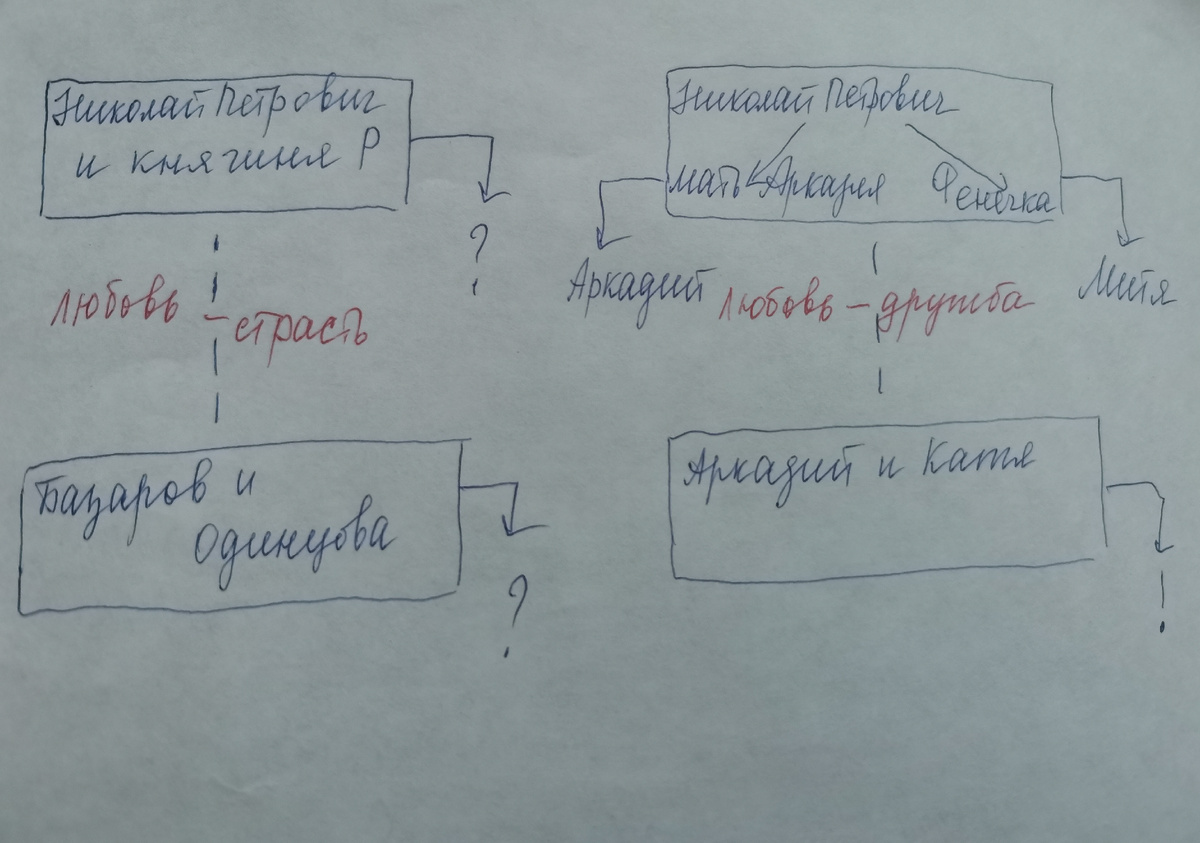 Николай Петрович
и княгиня Р
?
любовь – страсть
Базаров и
Одинцова
?
Николай Петрович
мать Аркадия Фенечка
Аркадий
Митя
любовь – дружба
Аркадий и Катя
!